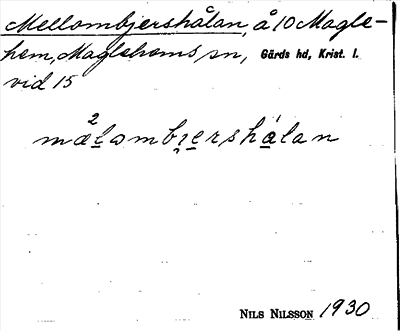 Mellombjershålan, å 10 Magle-
hem, Maglehems sn, Gärds hd, Krist. l.
vid 15
mæ²lombjershálan
NILS NILSSON 1930